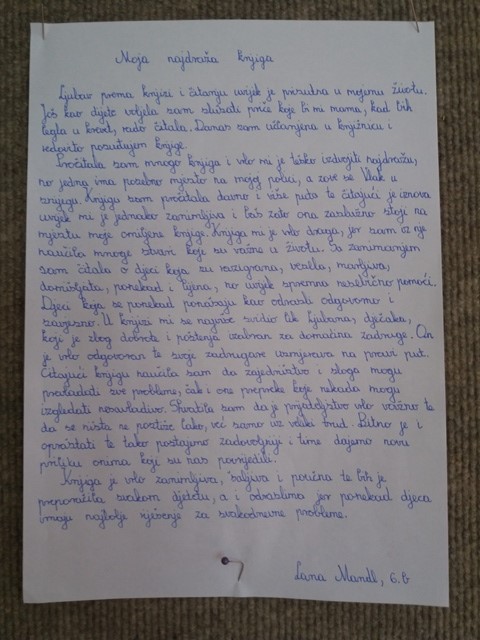 Moja najdraža knjiga
Ljubav prema knjizi i čitanju uvijek je prisutna u mojemu životu.
Još kao dijete voljela sam slušati priče koje bi mi mama, kad bih
legla u krevet, rado čitala. Danas sam učlanjena u knjižnicu i
redovito posuđujem knjige.
Pročitala sam mnogo knjiga i vrlo mi je teško izdvojiti najdražu,
no jedna ima posebno mjesto na mojoj polici, a zove se Vlak u
snijegu. Knjigu sam pročitala davno i više puta te čitajući je iznova
uvijek mi je jednako zanimljiva i baš zato ona zaslužno stoji na
mjestu moje omiljene knjige. Knjiga mi je vrlo draga, jer sam iz nje
naučila mnoge stvari koje su važne u životu. Sa zanimanjem
sam čitala o djeci koja su razigrana, vesela, marljiva,
domišljata, ponekad i lijena, no uvijek spremna nesebično pomoći.
Djeci koja se ponekad ponašaju kao odrasli odgovorno i
savjesno. U knjizi mi se najviše svidio lik Ljubana, dječaka,
koji je zbog dobrote i poštenja izabran za domaćina zadruge. On
je vrlo odgovoran te svoje zadrugare usmjerava na pravi put.
Čitajući knjigu naučila sam da zajedništvo i sloga mogu
prevladati sve probleme, čak i one prepreke koje nekada mogu
izgledati nesavladivo. Shvatila sam da je prijateljstvo vrlo važno te
da se ništa ne postiže lako, već samo uz veliki trud. Bitno je i
opraštati te tako postajemo zadovoljniji i time dajemo novu
priliku onima koji su nas povrijedili.
Knjiga je vrlo zanimljiva, šaljiva i poučna te bih je
preporučila svakom djetetu, a i odraslima jer ponekad djeca
imaju najbolje rješenje za svakodnevne probleme.
Lana Mandl, 6.b